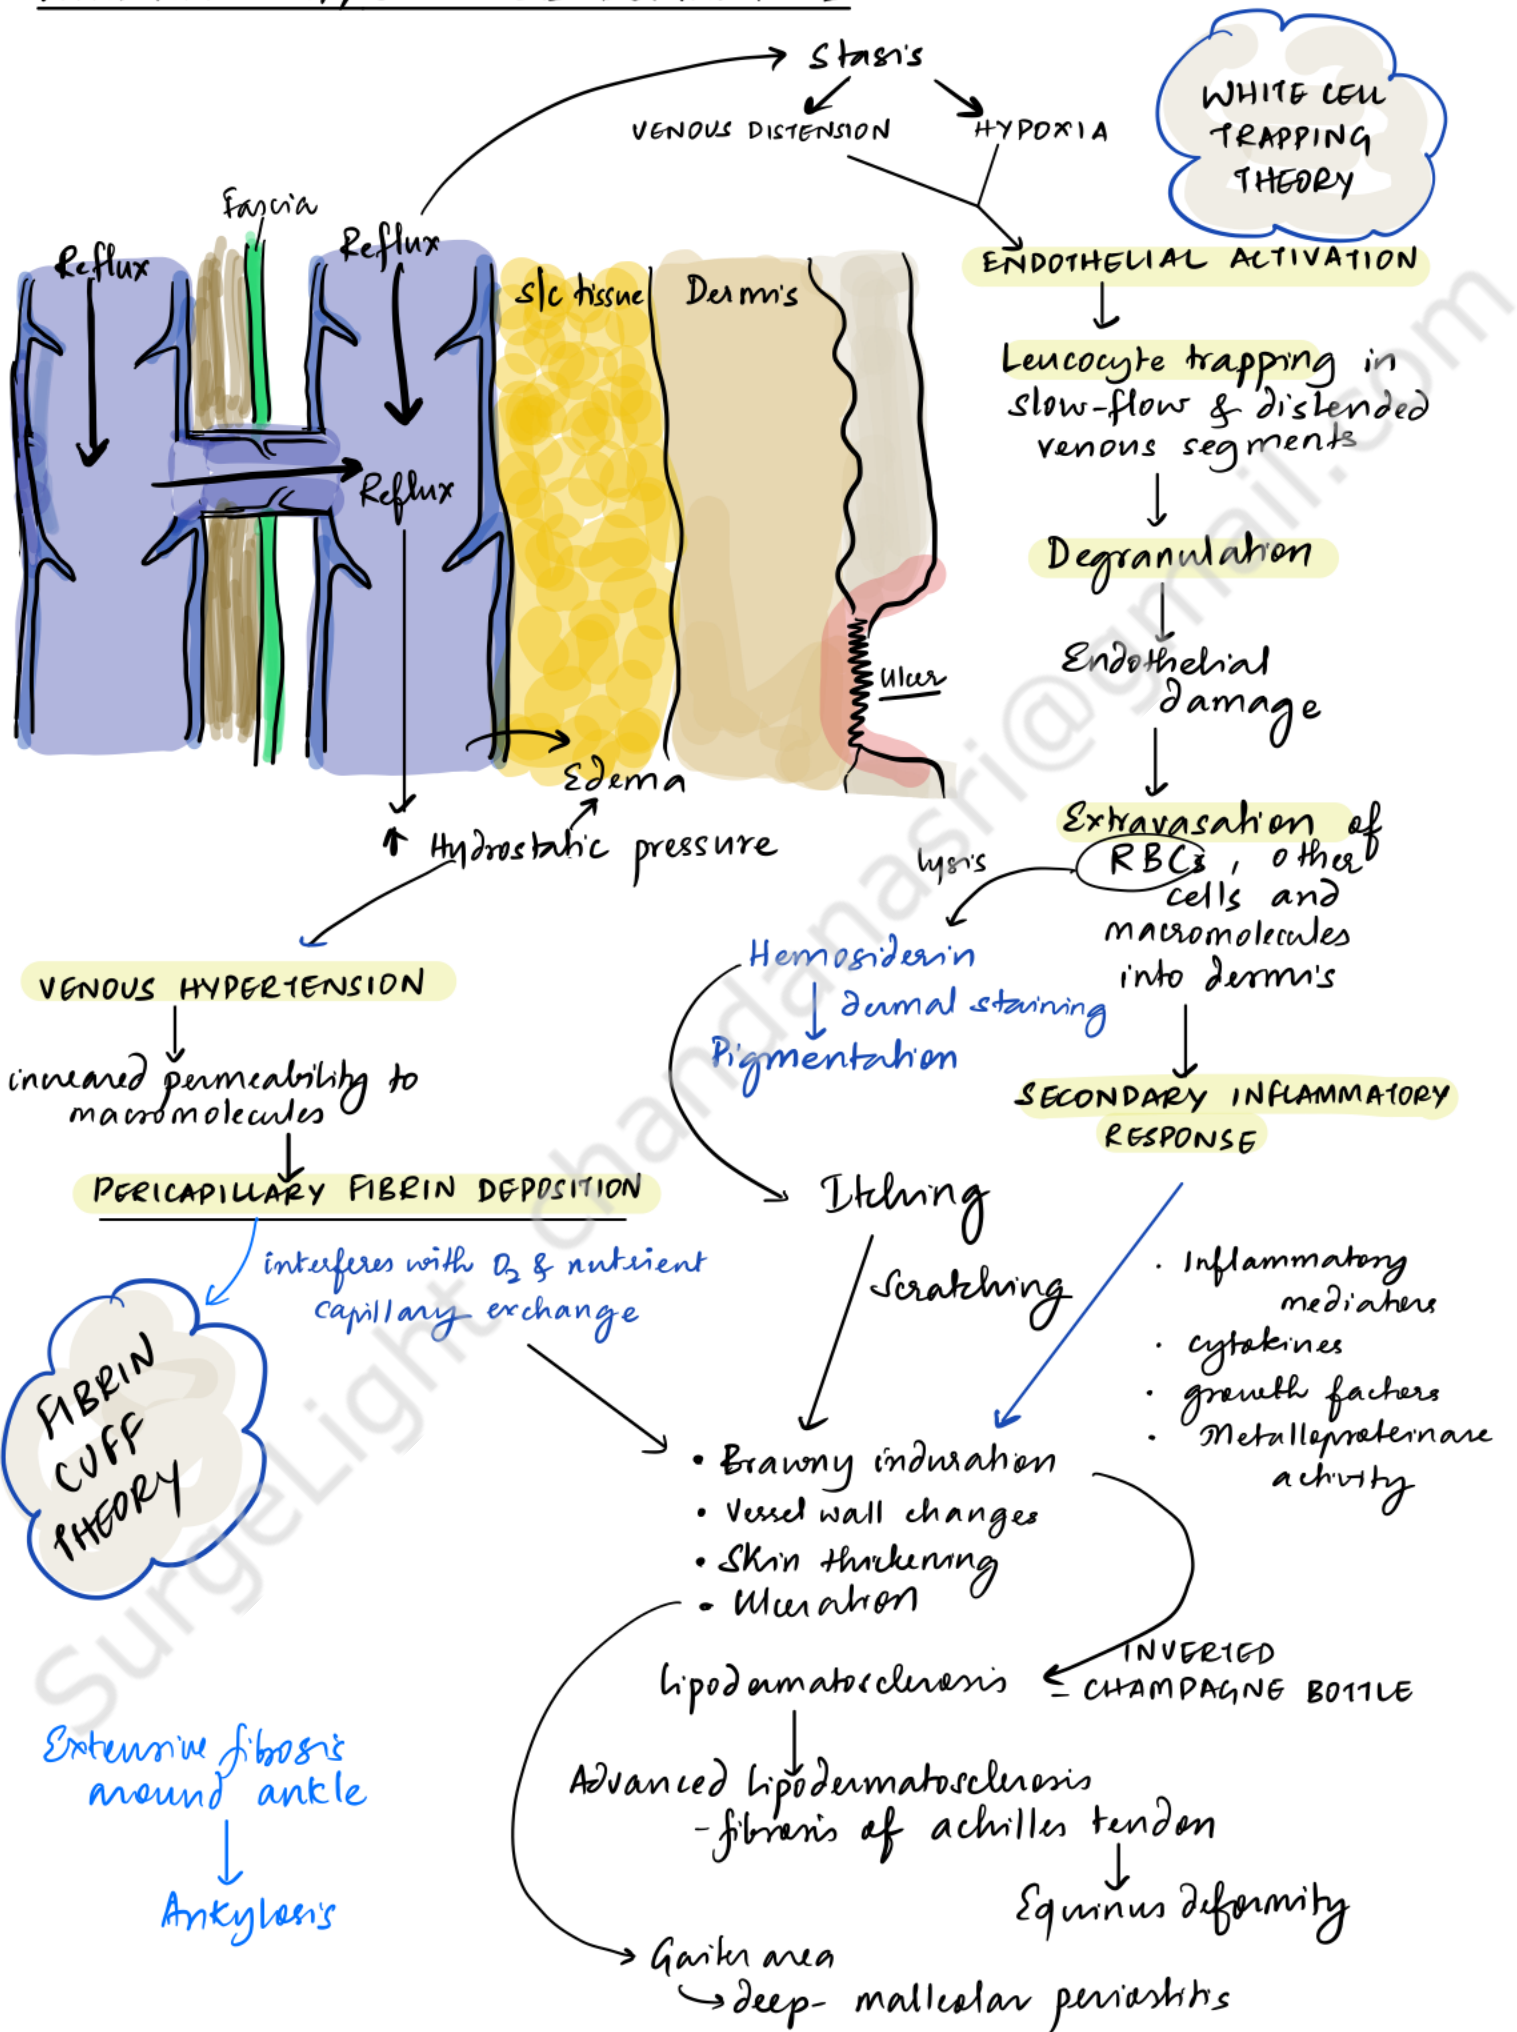 Stasis
VENOUS DISTENSION
HYPOXIA
WHITE CELL
TRAPPING
THEORY
Fascia
Reflux
Reflux
Reflux
s/c tissue
Dermis
Ulcer
Edema
↑ Hydrostatic pressure
ENDOTHELIAL ACTIVATION
Leucocyte trapping in
slow-flow & distended
venous segments
Degranulation
Endothelial
damage
Extravasation of
RBCs, other
cells and
macromolecules
into dermis
lysis
Hemosiderin
dermal staining
Pigmentation
SECONDARY INFLAMMATORY
RESPONSE
VENOUS HYPERTENSION
increased permeability to
macromolecules
PERICAPILLARY FIBRIN DEPOSITION
interferes with O₂ & nutrient
capillary exchange
FIBRIN
CUFF
THEORY
Itching
Scratching
• Inflammatory
mediators
• cytokines
• growth factors
• Metalloproteinase
activity
• Brawny induration
• Vessel wall changes
• Skin thickening
• Ulceration
Lipodermatosclerosis
INVERTED
– CHAMPAGNE BOTTLE
Advanced Lipodermatosclerosis
- fibrosis of achilles tendon
Equinus deformity
Extensive fibrosis
around ankle
Ankylosis
Gaiter area
deep- malleolar periostitis
SurgeLight chandanasri@gmail.com